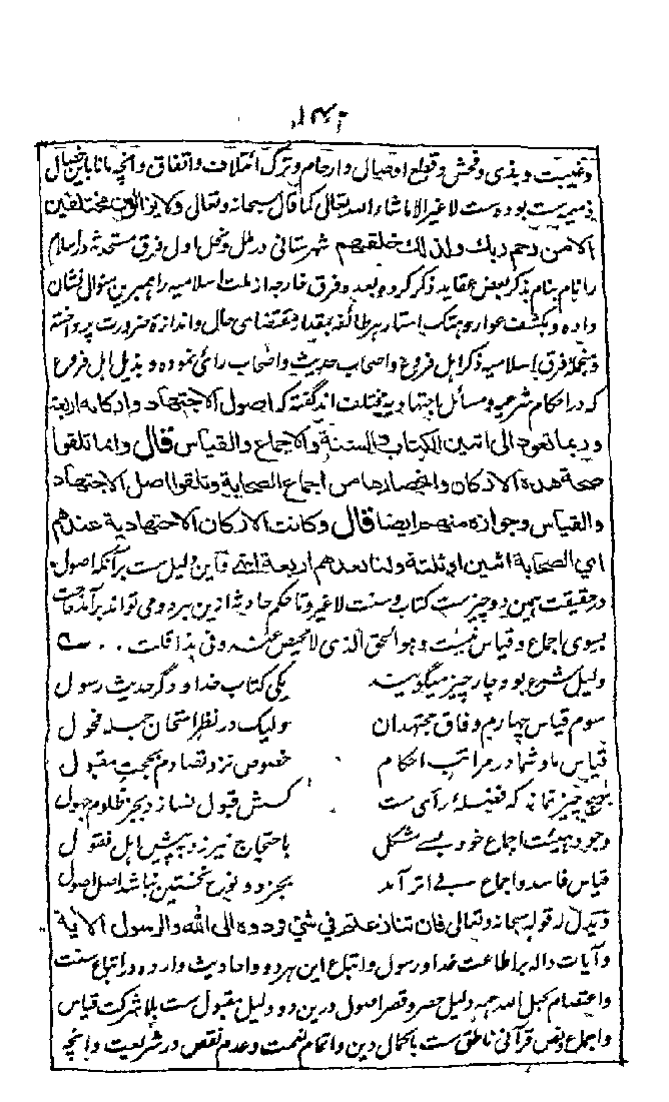 وغیبت و بذی و فحش و قطع اوصال و ارحام و ترک ائتلاف و اتفاق و آنچه مانا باین خصال
ذمیمه ست بوده ست لاغیر الا ماشاء الله تعالی کما قال سبحانه وتعالی ولا یزالون مختلفین
الامن رحم ربك ولذلك خلقهم شهرستانی در ملل و نحل اول فرق مستحدثه در اسلام
را نام بنام بذکر بعض عقاید ذکر کرده و بعده فرق خارجه از ملت اسلامیه را همبرین منوال نشان
داده و بکشف عوار و هتک استار هر طائفه بقدر مقتضای حال و اندازهٔ ضرورت پرداخته
و منجمله فرق اسلامیه ذکر اهل فروع و اصحاب حدیث و اصحاب رای نموده و بذیل اهل فروع
که در احکام شرعیه و مسائل اجتهادیه مختلف اند گفته که اصول الاجتهاد وارکانه اربعة
وربما تعود الی اثنین الکتاب والسنة والاجماع والقیاس قال وانما تلقوا
صحة هذه الارکان وانحصارها من اجماع الصحابة وتلقوا اصل الاجتهاد
والقیاس وجوازه منهم ایضا قال وکانت الارکان الاجتهادیة عندهم
ای الصحابة اثنین او ثلثة ولنا بعدهم اربعة انتهی و این دلیل ست بر آنکه اصول
در حقیقت همین دو چیز ست کتاب و سنت لاغیر و تا حکم حادثه ازین هر دو می تواند برآمد حاجت
بسوی اجماع و قیاس نیست وهو الحق الذی لا محیص عنه وفی هذا قلت
دلیل شرع بود چار چیز میگویند یکی کتاب خدا و دگر حدیث رسول
سوم قیاس چهارم وفاق مجتهدان ولیک در نظر امتحان فحول
قیاس ما و شما در مراتب احکام خصوص نزد تصادم بحجت مقبول
چیز نماند که فضلهٔ رای ست کسش قبول نسازد بجز ظلوم جهول
وجود هیئت اجماع خود بسے مشکل باحتجاج نیرزد به پیش اهل عقول
قیاس فاسد و اجماع بے اثر آمد بجز دو نوع نخستین نباشد اصل اصول
ویدل له قوله سبحانه وتعالی فان تنازعتم فی شیٔ ودوه الی الله والرسول الآیة
و آیات داله بر اطاعت خدا و رسول و اتباع این هر دو و احادیث وارده در اتباع سنت
و اعتصام بحبل الله همه دلیل حصر و قصر اصول درین دو دلیل مقبول ست بلا شرکت قیاس
و اجماع و نص قرآنی ناطق ست باکمال دین و اتمام نعمت و عدم نقص در شریعت و آنچه